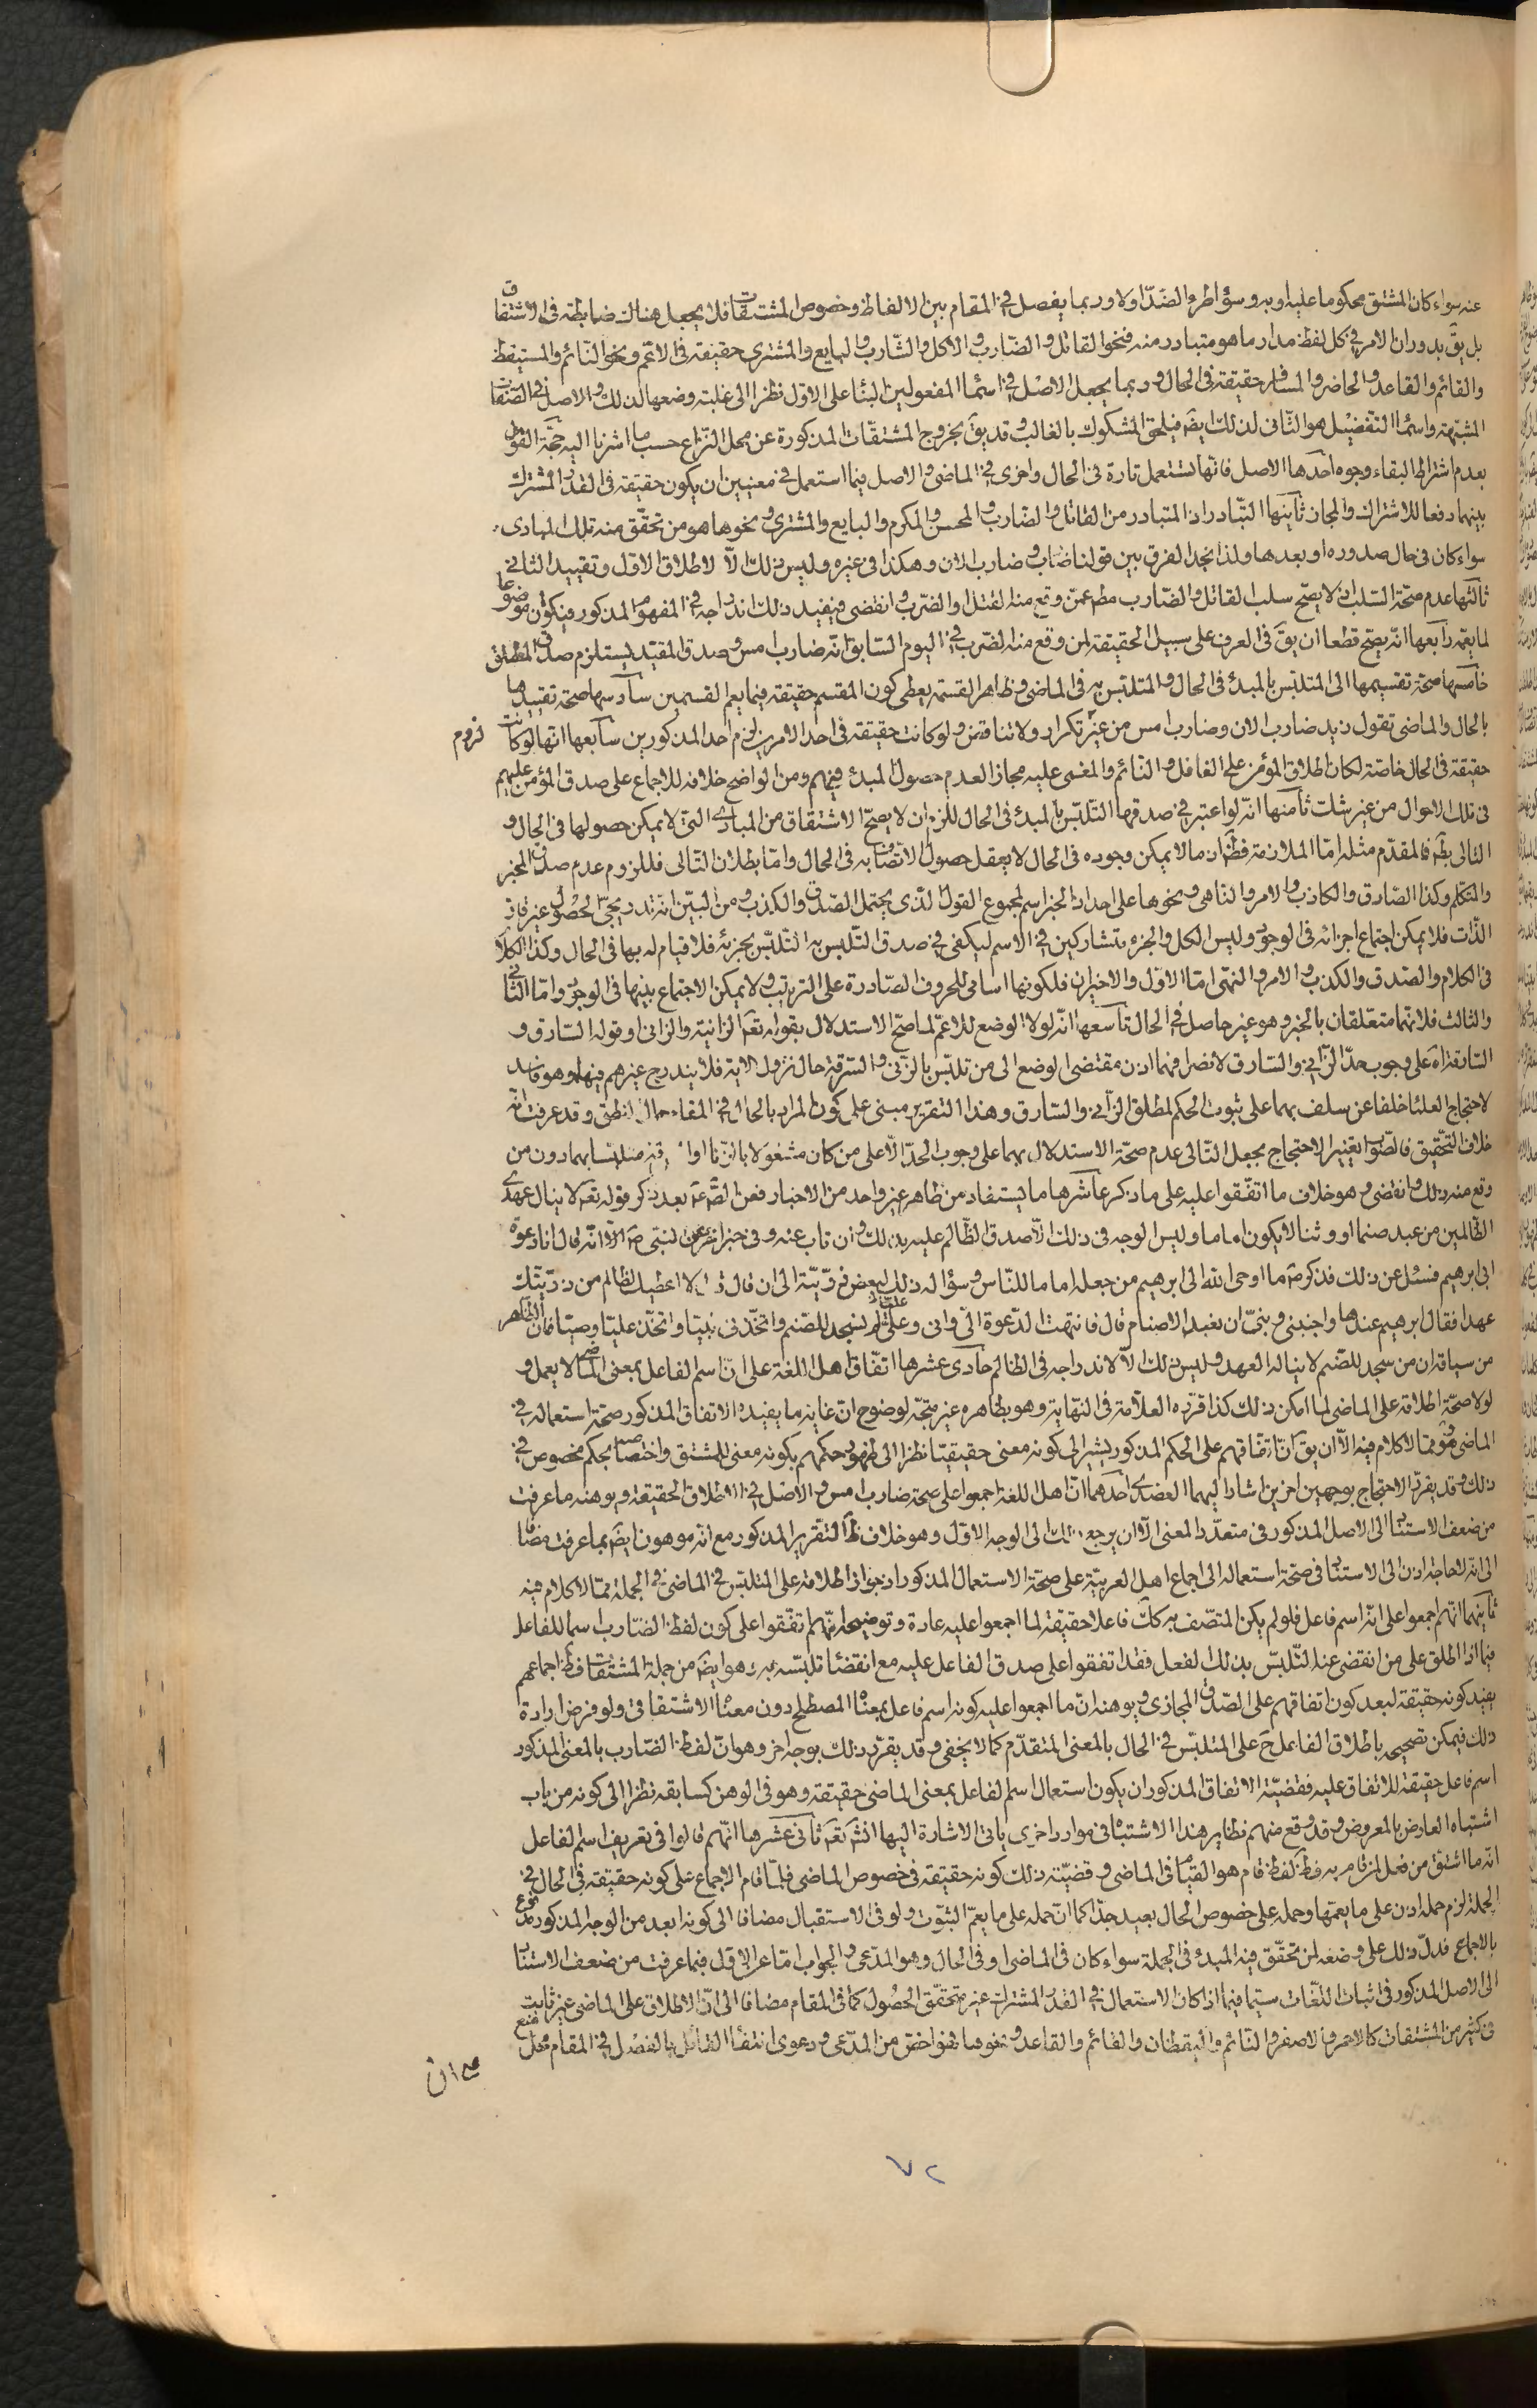 عنه سواء كان المشتق محكوما عليه او به وسواء طرء الضد او لا وربما يفصل في المقام بين الالفاظ وخصوص المشتقات فلا يجعل هناك ضابطة في الاشتقاق
بل يق بدوران الامر في كل لفظ مدار ما هو متبادر منه فنحو القاتل والضارب والاكل والشارب والبايع والمشترى حقيقة في الاعم ونحو النائم والمستيقظ
والقائم والقاعد والحاضر والمسافر حقيقة في الحال وربما يجعل الاصل في اسماء المفعولين البناء على الاول نظرا الى غلبة وضعها لذلك والاصل في الصفات
المشبهة واسماء التفضيل هو الثاني لذلك ايضه فيلحق المشكوك بالغالب وقد يق بخروج المشتقات المذكورة عن محل النزاع حسب ما اشرنا اليه حجة القول
بعدم اشتراط البقاء وجوه احدها الاصل فانها تستعمل تارة في الحال واخرى في الماضى والاصل فيما استعمل في معنيين ان يكون حقيقة في القدر المشترك
بينهما دفعا للاشتراك والمجاز ثانيها التبادر اذ المتبادر من القاتل والضارب والمحسن والمكرم والبايع والمشترى ونحوها هو من تحقق منه تلك المبادى
سواء كان في حال صدوره او بعدها ولذا نجد الفرق بين قولنا ضارب وضارب الان وهكذا في غيره وليس ذلك الا لاطلاق الاول وتقييد الثاني
ثالثها عدم صحة السلب اذ لا يصح سلب القاتل والضارب مطم عمن وقع منه القتل او الضرب وانقضى فيفيد ذلك اندراجه في المفهوم المذكور فيكون موضوعا
لما يعمه رابعها انه يصح قطعا ان يق في العرف على سبيل الحقيقة لمن وقع منه الضرب في اليوم السابق انه ضارب امس وصدق المقيد يستلزم صدق المطلق
خامسها صحة تقسيمها الى المتلبس بالمبدء في الحال والمتلبس به في الماضى وظاهر القسمة يعطى كون المقسم حقيقة فيما يعم القسمين سادسها صحة تقييدها
بالحال والماضى تقول زيد ضارب الان وضارب امس من غير تكرار ولا تناقض ولو كانت حقيقة في احد الامرين لزم احد المذكورين سابعها انها لو كانت
لزوم
حقيقة في الحال خاصة لكان اطلاق المؤمن على الغافل والنائم والمغمى عليه مجازا لعدم حصول المبدء فيهم ومن الواضح خلافه للاجماع على صدق المؤمن عليهم
في تلك الاحوال من غير شك ثامنها انه لو اعتبر في صدقها التلبس بالمبدء في الحال للزم ان لا يصح الاشتقاق من المبادى التى لا يمكن حصولها في الحال و
التالى بطه فالمقدم مثله اما الملازمة فظه ان ما لا يمكن وجوده في الحال لا يعقل حصول الاتصاف به في الحال واما بطلان التالى فللزوم عدم صدق المخبر
والمتكلم وكذا الصادق والكاذب والامر والناهى ونحوها على احد اذ الخبر اسم لمجموع القول الذى يحتمل الصدق والكذب ومن البين انه تدريجى الحصول غير قار
الذات فلا يمكن اجتماع اجزائه في الوجود وليس الكل والجزء متشاركين في الاسم ليكفى في صدق التلبس به التلبس بجزئه فلا قيام له بها في الحال وكذا الكلام
في الكلام والصدق والكذب والامر والنهى اما الاول والاخيران فلكونها اسامى للحروف الصادرة على الترتيب ولا يمكن الاجتماع بينها في الوجود واما الثانى
والثالث فلانهما متعلقان بالخبر وهو غير حاصل في الحال تاسعها انه لولا الوضع للاعم لما صح الاستدلال بقوله تعه الزانية والزانى وقوله السارق و
السارقة اه على وجوب حد الزانى والسارق لانصرافهما اذن مقتضى الوضع الى من تلبس بالزنى والسرقة حال نزول الاية فلا يندرج غيرهم فيها وهو فاسد
لاحتجاج العلماء خلفا عن سلف بهما على ثبوت الحكم لمطلق الزانى والسارق وهذا التقرير مبنى على كون المراد بالحال في المقام حال النطق وقد عرفت انه
خلاف التحقيق فالصواب تغيير الاحتجاج بجعل التالى عدم صحة الاستدلال بهما على وجوب الحد الا على من كان مشغولا بالزنا او السرقة متلبسا بهما دون من
وقع منه ذلك وانقضى وهو خلاف ما اتفقوا عليه على ما ذكر عاشرها ما يستفاد من ظاهر غير واحد من الاخبار فعن الصه عه بعد ذكر قوله تعه لا ينال عهدى
الظالمين من عبد صنما او وثنا لا يكون اماما وليس الوجه في ذلك الا صدق الظالم عليه بذلك وان تاب عنه وفي خبر اخر عن النبى صه انه قال انا دعوة
ابى ابرهيم فسئل عن ذلك فذكر صه ما اوحى الله الى ابرهيم من جعله اماما للناس وسؤاله ذلك لبعض ذريته الى ان قال لا اعطيك لظالم من ذريتك
عهدا فقال ابرهيم عندها واجنبنى وبنى ان نعبد الاصنام قال فانتهت الدعوة الى وانى وعلى لم نسجد للصنم واتخذنى نبيا واتخذ عليا وصيا فان الظاهر
من سياقه ان من سجد للصنم لا يناله العهد وليس ذلك الا لاندراجه في الظالم حادى عشرها اتفاق اهل اللغة على ان اسم الفاعل بمعنى الماضى لا يعمل و
لولا صحة اطلاقه على الماضى لما امكن ذلك كذا قرره العلامة في النهاية وهو بظاهره غير متجه لوضوح ان غاية ما يفيده الاتفاق المذكور صحة استعماله في
الماضى وهو مما لا كلام فيه الا ان يق ان اتفاقهم على الحكم المذكور يشير الى كونه معنى حقيقيا نظرا الى ظهور حكمهم بكونه معنى للمشتق واختصاصه بحكم مخصوص في
ذلك وقد يقرر الاحتجاج بوجهين اخرين اشار اليهما العضدى احدهما ان اهل اللغة اجمعوا على صحة ضارب امس والاصل في الاطلاق الحقيقة ويوهنه ما عرفت
من ضعف الاستناد الى الاصل المذكور في متعدد المعنى الا ان يرجع ذلك الى الوجه الاول وهو خلاف ظه التقرير المذكور مع انه موهون ايضه بما عرفت مضافا
الى انه لا حاجة اذن الى الاستناد في صحة استعماله الى اجماع اهل العربية على صحة الاستعمال المذكور اذ جواز اطلاقه على المتلبس في الماضى في الجملة مما لا كلام فيه
ثانيهما انهم اجمعوا على انه اسم فاعل فلو لم يكن المتصف به كك فاعلا حقيقة لما اجمعوا عليه عادة وتوضيحه انهم اتفقوا على كون لفظ الضارب اسما للفاعل
فيما اذا اطلق على من انقضى عنه التلبس بذلك الفعل فقد اتفقوا على صدق الفاعل عليه مع انقضاء تلبسه به وهو ايضه من جملة المشتقات فظه اجماعهم
يفيد كونه حقيقة لبعد كون اتفاقهم على الصدق المجازى ويوهنه ان ما اجمعوا عليه كونه اسم فاعل بمعناه المصطلح دون معناه الاشتقاقى ولو فرض ارادة
ذلك فيمكن تصحيحه باطلاق الفاعل ح على المتلبس في الحال بالمعنى المتقدم كما لا يخفى وقد يقرر ذلك بوجه اخر وهو ان لفظ الضارب بالمعنى المذكور
اسم فاعل حقيقة للاتفاق عليه فقضية الاتفاق المذكور ان يكون استعمال اسم الفاعل بمعنى الماضى حقيقة وهو في الوهن كسابقه نظرا الى كونه من باب
اشتباه العارض بالمعروض وقد وقع منهم نظاير هذا الاشتباه في موارد اخرى ياتى الاشارة اليها انشه تعه ثانى عشرها انهم قالوا في تعريف اسم الفاعل
انه ما اشتق من فعل لمن قام به فظه لفظ قام هو القيام في الماضى وقضية ذلك كونه حقيقة في خصوص الماضى فلما قام الاجماع على كونه حقيقة في الحال في
الجملة لزم حمله اذن على ما يعمها وحمله على خصوص الحال بعيد جدا كما ان حمله على ما يعم الثبوت ولو في الاستقبال مضافا الى كونه ابعد من الوجه المذكور مدفوع
بالاجماع فدل ذلك على وضعه لمن تحقق فيه المبدء في الجملة سواء كان في الماضى او في الحال وهو المدعى والجواب اما عن الاول فبما عرفت من ضعف الاستناد
الى الاصل المذكور في اثبات اللغات سيما فيما اذا كان الاستعمال في القدر المشترك غير متحقق الحصول كما في المقام مضافا الى ان الاطلاق على الماضى غير ثابت
في كثير من المشتقات كالاحمر والاصفر والنائم واليقظان والقائم والقاعد ونحوها فهو اخص من المدعى ودعوى انتفاء القائل بالفصل في المقام محل منع
٧٢